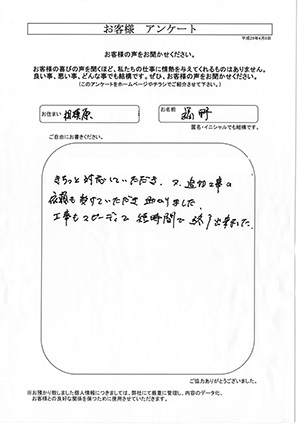 お客様　アンケート
平成29年4月8日
お客様の声をお聞かせください。
お客様の喜びの声を聞くほど、私たちの仕事に情熱を与えてくれるものはありません。
良い事、悪い事、どんな事でも結構です。ぜひ、お客様の声をお聞かせください。
(このアンケートをホームページやチラシでご紹介させて下さい。)
お住まい 相模原
お名前 野
匿名・イニシャルでも結構です。
ご自由にお書きください。
きちっと対応していただき、又、追加工事の
依頼も無理していただき 助かりました。
工事もスピーディで 短時間で 終了出来ました。
ご協力ありがとうございました。
※お預かり致しました個人情報につきましては、弊社にて厳重に管理し、内容のデータ化、
お客様との良好な関係を保つために使用させていただきます。